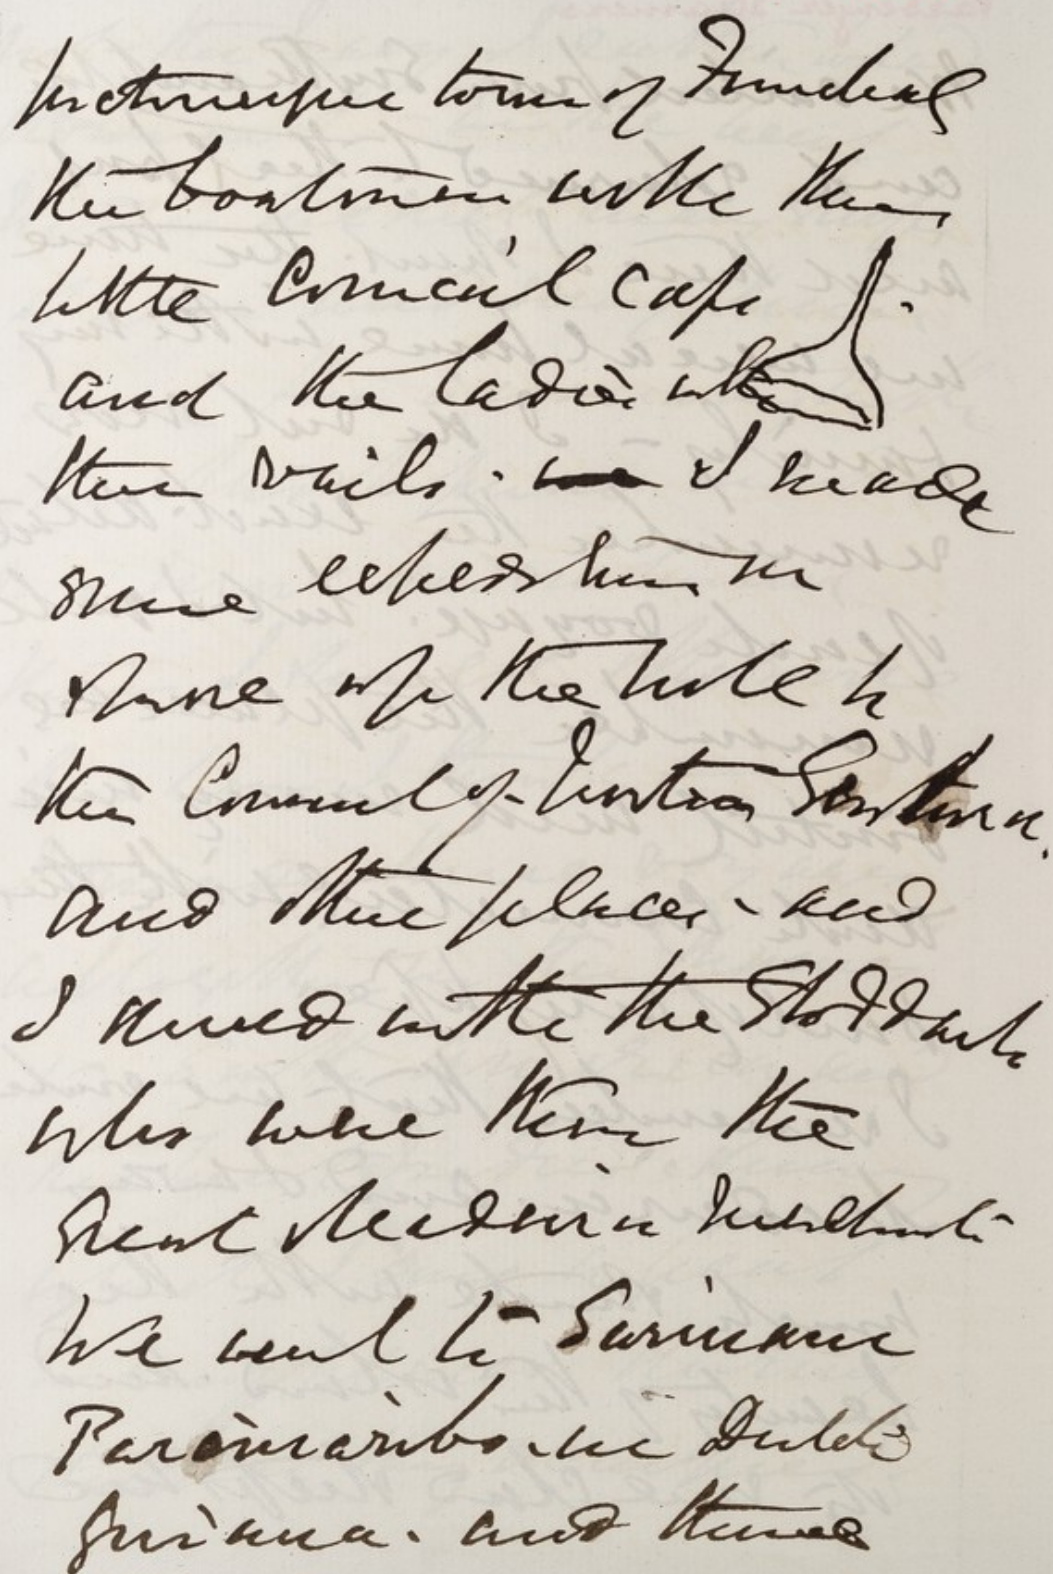 picturesque town of Funchal
the boatmen with their
little Conical Caps
and the Ladies with
their veils. I made
some expeditions on
shore up the hill to
the Convent of
and other places - and
I dined with the Stoddarts
who were then the
great Madeira Merchants
We went to Surinam
Paramaribo. in Dutch
Guiana. and thence